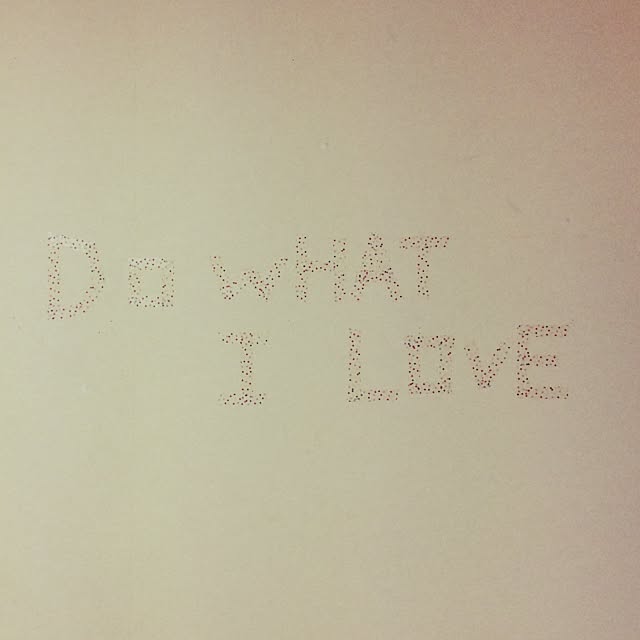 Do wHAT
I LOvE